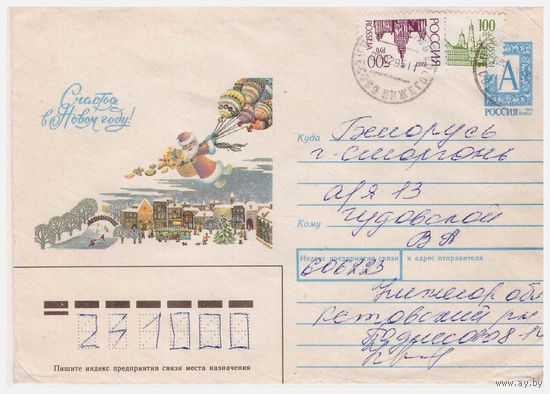 Счастья
в Новом году!
РОССИЯ
ROSSIJA
500
РУБ
100
РОССИЯ
А
РОССИЯ
Куда Беларусь
г. Сморгонь
а/я 13
Кому Чудовской
В А
Индекс предприятия связи и адрес отправителя
606223
Нижегор обл
231000
Пишите индекс предприятия связи места назначения
www.ay.by